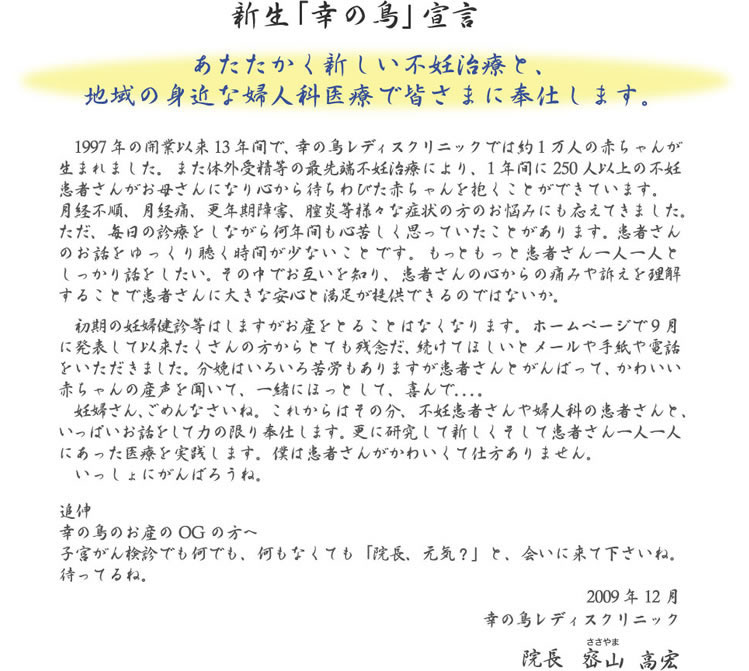 新生「幸の鳥」宣言
あたたかく新しい不妊治療と、
地域の身近な婦人科医療で皆さまに奉仕します。
1997年の開業以来13年間で、幸の鳥レディスクリニックでは約1万人の赤ちゃんが
生まれました。また体外受精等の最先端不妊治療により、1年間に250人以上の不妊
患者さんがお母さんになり心から待ちわびた赤ちゃんを抱くことができています。
月経不順、月経痛、更年期障害、膣炎等様々な症状の方のお悩みにも応えてきました。
ただ、毎日の診療をしながら何年間も心苦しく思っていたことがあります。患者さん
のお話をゆっくり聴く時間が少ないことです。もっともっと患者さん一人一人と
しっかり話をしたい。その中でお互いを知り、患者さんの心からの痛みや訴えを理解
することで患者さんに大きな安心と満足が提供できるのではないか。
初期の妊婦健診等はしますがお産をとることはなくなります。ホームページで9月
に発表して以来たくさんの方からとても残念だ、続けてほしいとメールや手紙や電話
をいただきました。分娩はいろいろ苦労もありますが患者さんとがんばって、かわいい
赤ちゃんの産声を聞いて、一緒にほっとして、喜んで....。
妊婦さん、ごめんなさいね。これからはその分、不妊患者さんや婦人科の患者さんと、
いっぱいお話をして力の限り奉仕します。更に研究して新しくそして患者さん一人一人
にあった医療を実践します。僕は患者さんがかわいくて仕方ありません。
いっしょにがんばろうね。
追伸
幸の鳥のお産のOGの方へ
子宮がん検診でも何でも、何もなくても「院長、元気?」と、会いに来て下さいね。
待ってるね。
2009年12月
幸の鳥レディスクリニック
ささやま
院長 嵡山 高宏